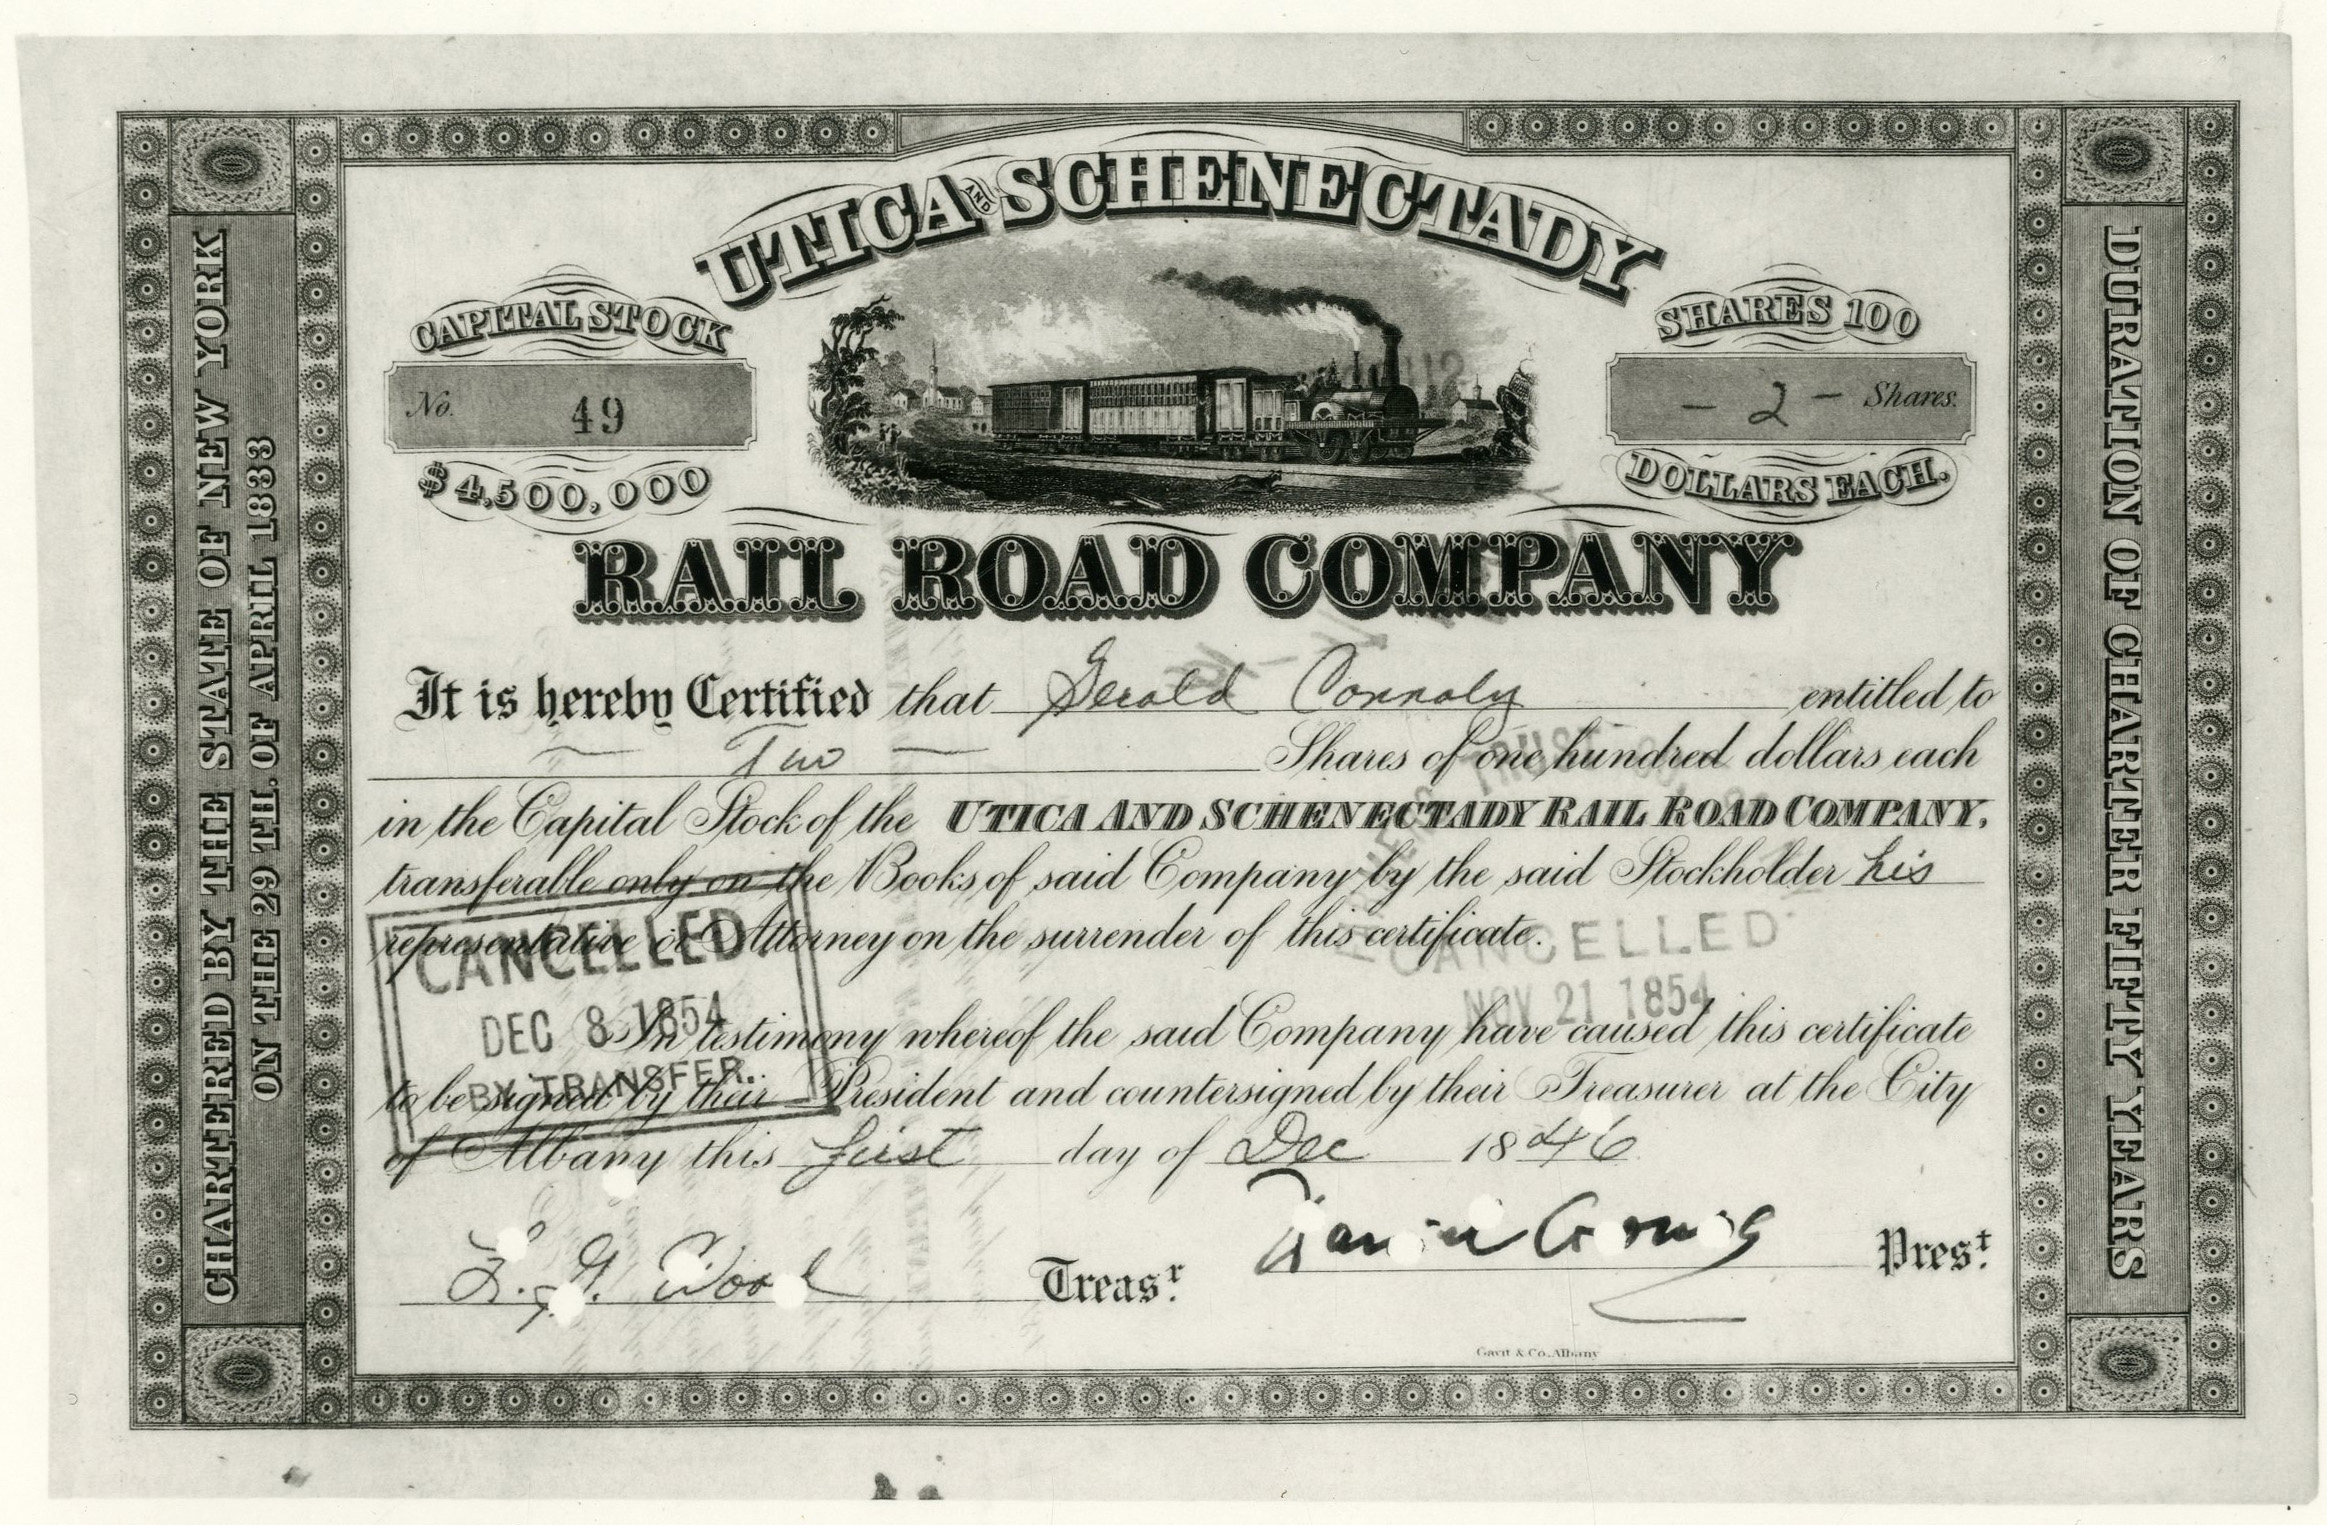 UTICA AND SCHENECTADY
CAPITAL STOCK
No. 49
$4,500,000
SHARES 100
- 2 - Shares.
DOLLARS EACH.
RAIL ROAD COMPANY
It is hereby Certified that Gerald Connoly entitled to
Two Shares of one hundred dollars each
in the Capital Stock of the UTICA AND SCHENECTADY RAIL ROAD COMPANY,
transferable only on the Books of said Company by the said Stockholder his
representative or Attorney on the surrender of this certificate.
In testimony whereof the said Company have caused this certificate
to be signed by their President and countersigned by their Treasurer at the City
of Albany this first day of Dec 1846
Wood Treasr.
Prest.
Gavit & Co. Albany
CHARTERED BY THE STATE OF NEW YORK
ON THE 29 TH. OF APRIL 1833
DURATION OF CHARTER FIFTY YEARS
CANCELLED.
DEC 8 1854
BY TRANSFER.
CANCELLED
NOV 21 1854
TRUST